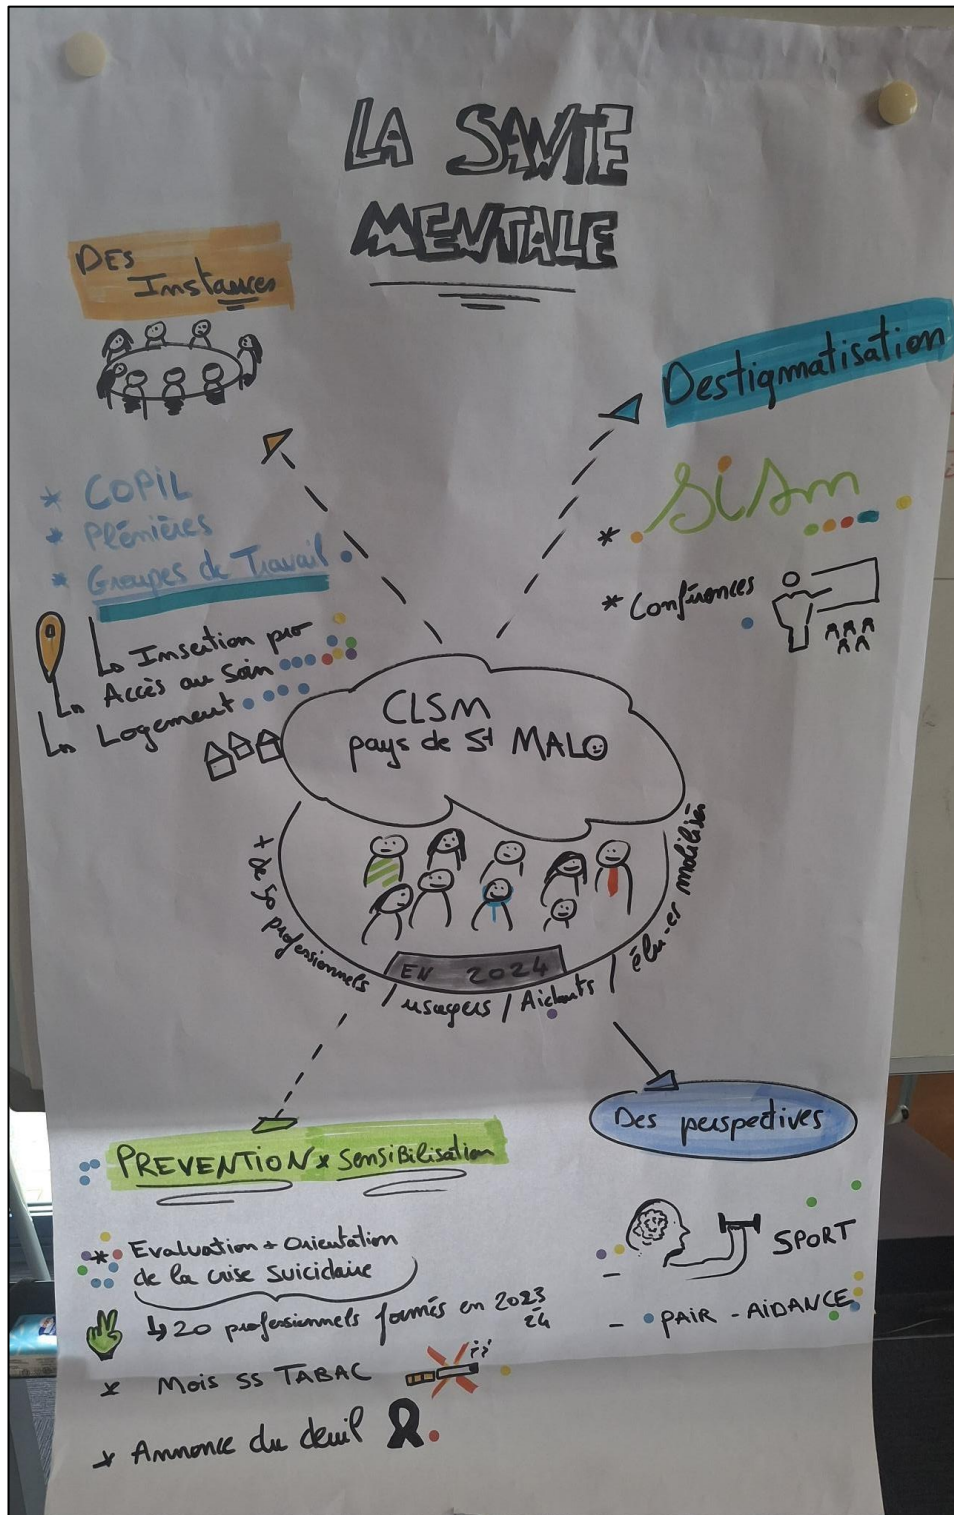 LA SANTE
MENTALE
DES
Instances
* COPIL
* Plénières
* Groupes de Travail
Insertion pro
Accès au Soin
Logement
Destigmatisation
* SiSm
* Conférences
CLSM
pays de St MALO
+ de 50 professionnels / usagers / Aidants / élu-es mobilisés
EN 2024
PREVENTION * SensiBilisation
* Evaluation + Orientation
de la crise suicidaire
↳ 20 professionnels formés en 2023
24
* Mois ss TABAC
* Annonce du deuil
Des perspectives
- SPORT
- PAIR - AIDANCE